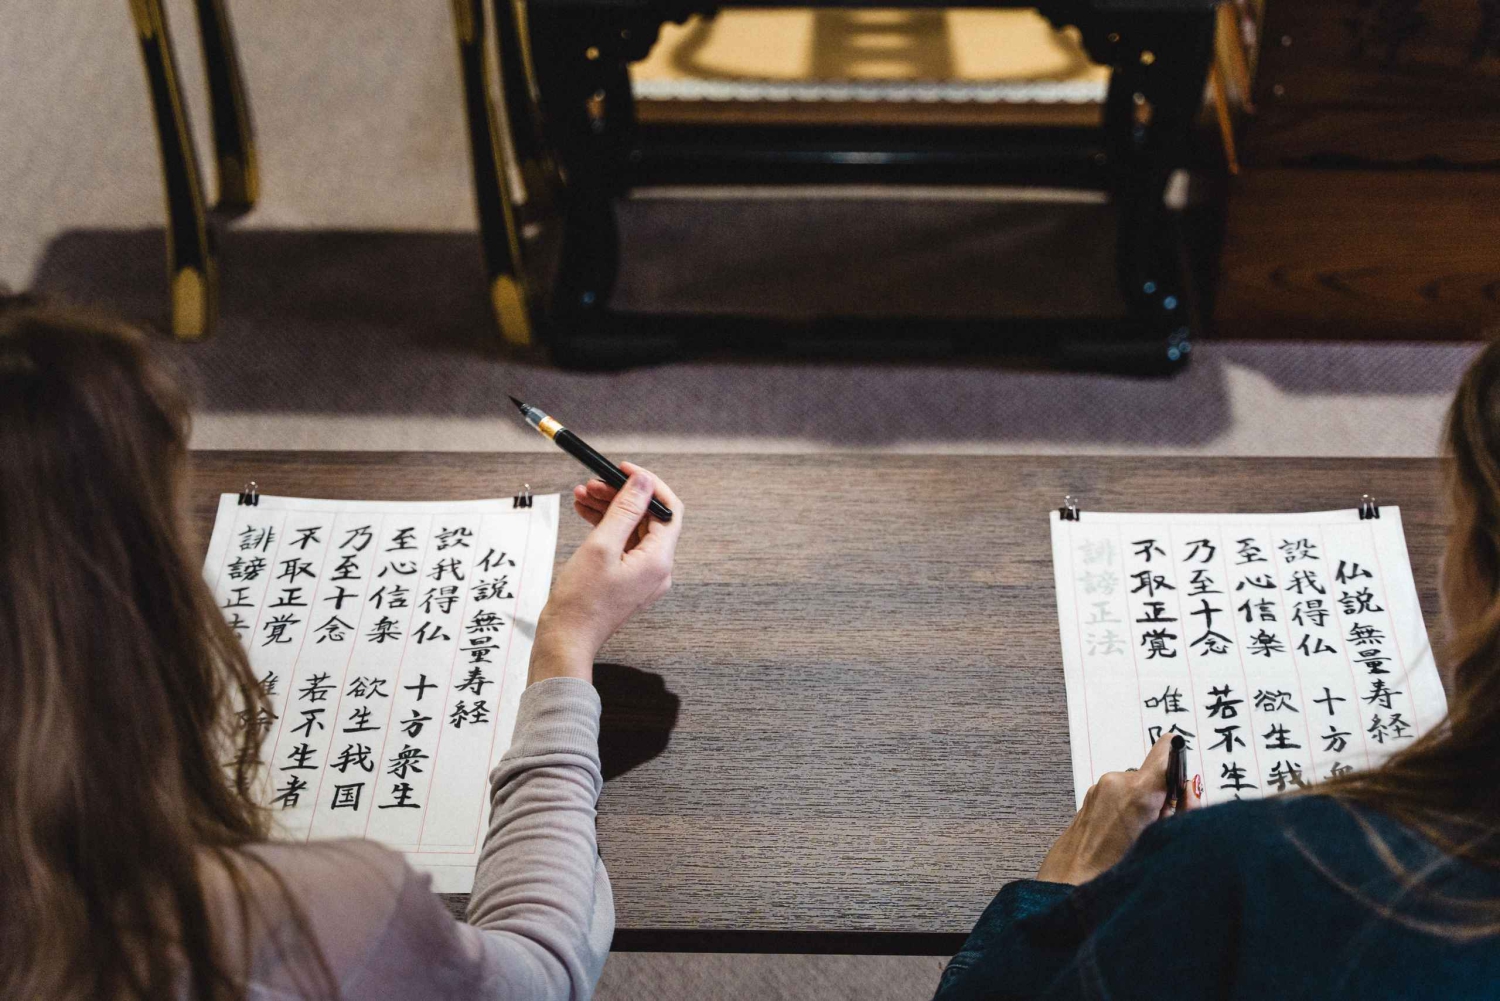 仏説無量寿経
設我得仏 十方衆生
至心信楽 欲生我国
乃至十念 若不生者
不取正覚 唯除
誹謗正法
仏説無量寿経
設我得仏 十方衆
至心信楽 欲生我
乃至十念 若不生
不取正覚 唯除
誹謗正法